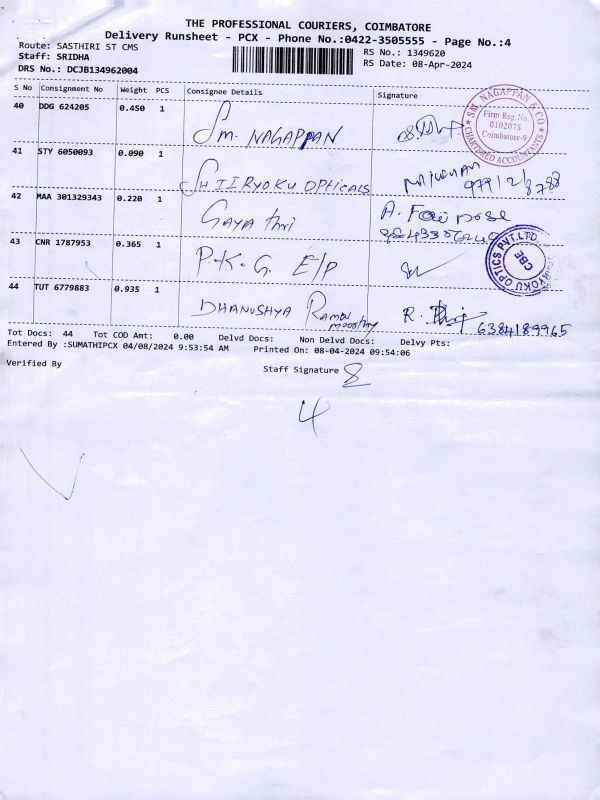 THE PROFESSIONAL COURIERS, COIMBATORE
Delivery Runsheet - PCX - Phone No.:0422-3505555 - Page No.:4
Route: SASTHIRI ST CMS
Staff: SRIDHA
DRS No.: DCJB134962004
RS No.: 1349620
RS Date: 08-Apr-2024
S No Consignment No Weight PCS Consignee Details Signature
40 DDG 624205 0.450 1 Sm. NAGAPPAN
S.M. NAGAPPAN & CO
Firm Reg.No.
010207S
Coimbatore-9
CHARTERED ACCOUNTANTS
41 STY 6050093 0.090 1 SHIIRYOKU OPTICALS
42 MAA 301329343 0.220 1 Gayathri A.
43 CNR 1787953 0.365 1 P.K.G. E/P
OPTICS PVT.LTD.
CBE
44 TUT 6779883 0.935 1 DHANUSHYA Ramamoorthy R. 6384189965
Tot Docs: 44 Tot COD Amt: 0.00 Delvd Docs: Non Delvd Docs: Delvy Pts:
Entered By :SUMATHIPCX 04/08/2024 9:53:54 AM Printed On: 08-04-2024 09:54:06
Verified By
Staff Signature
4